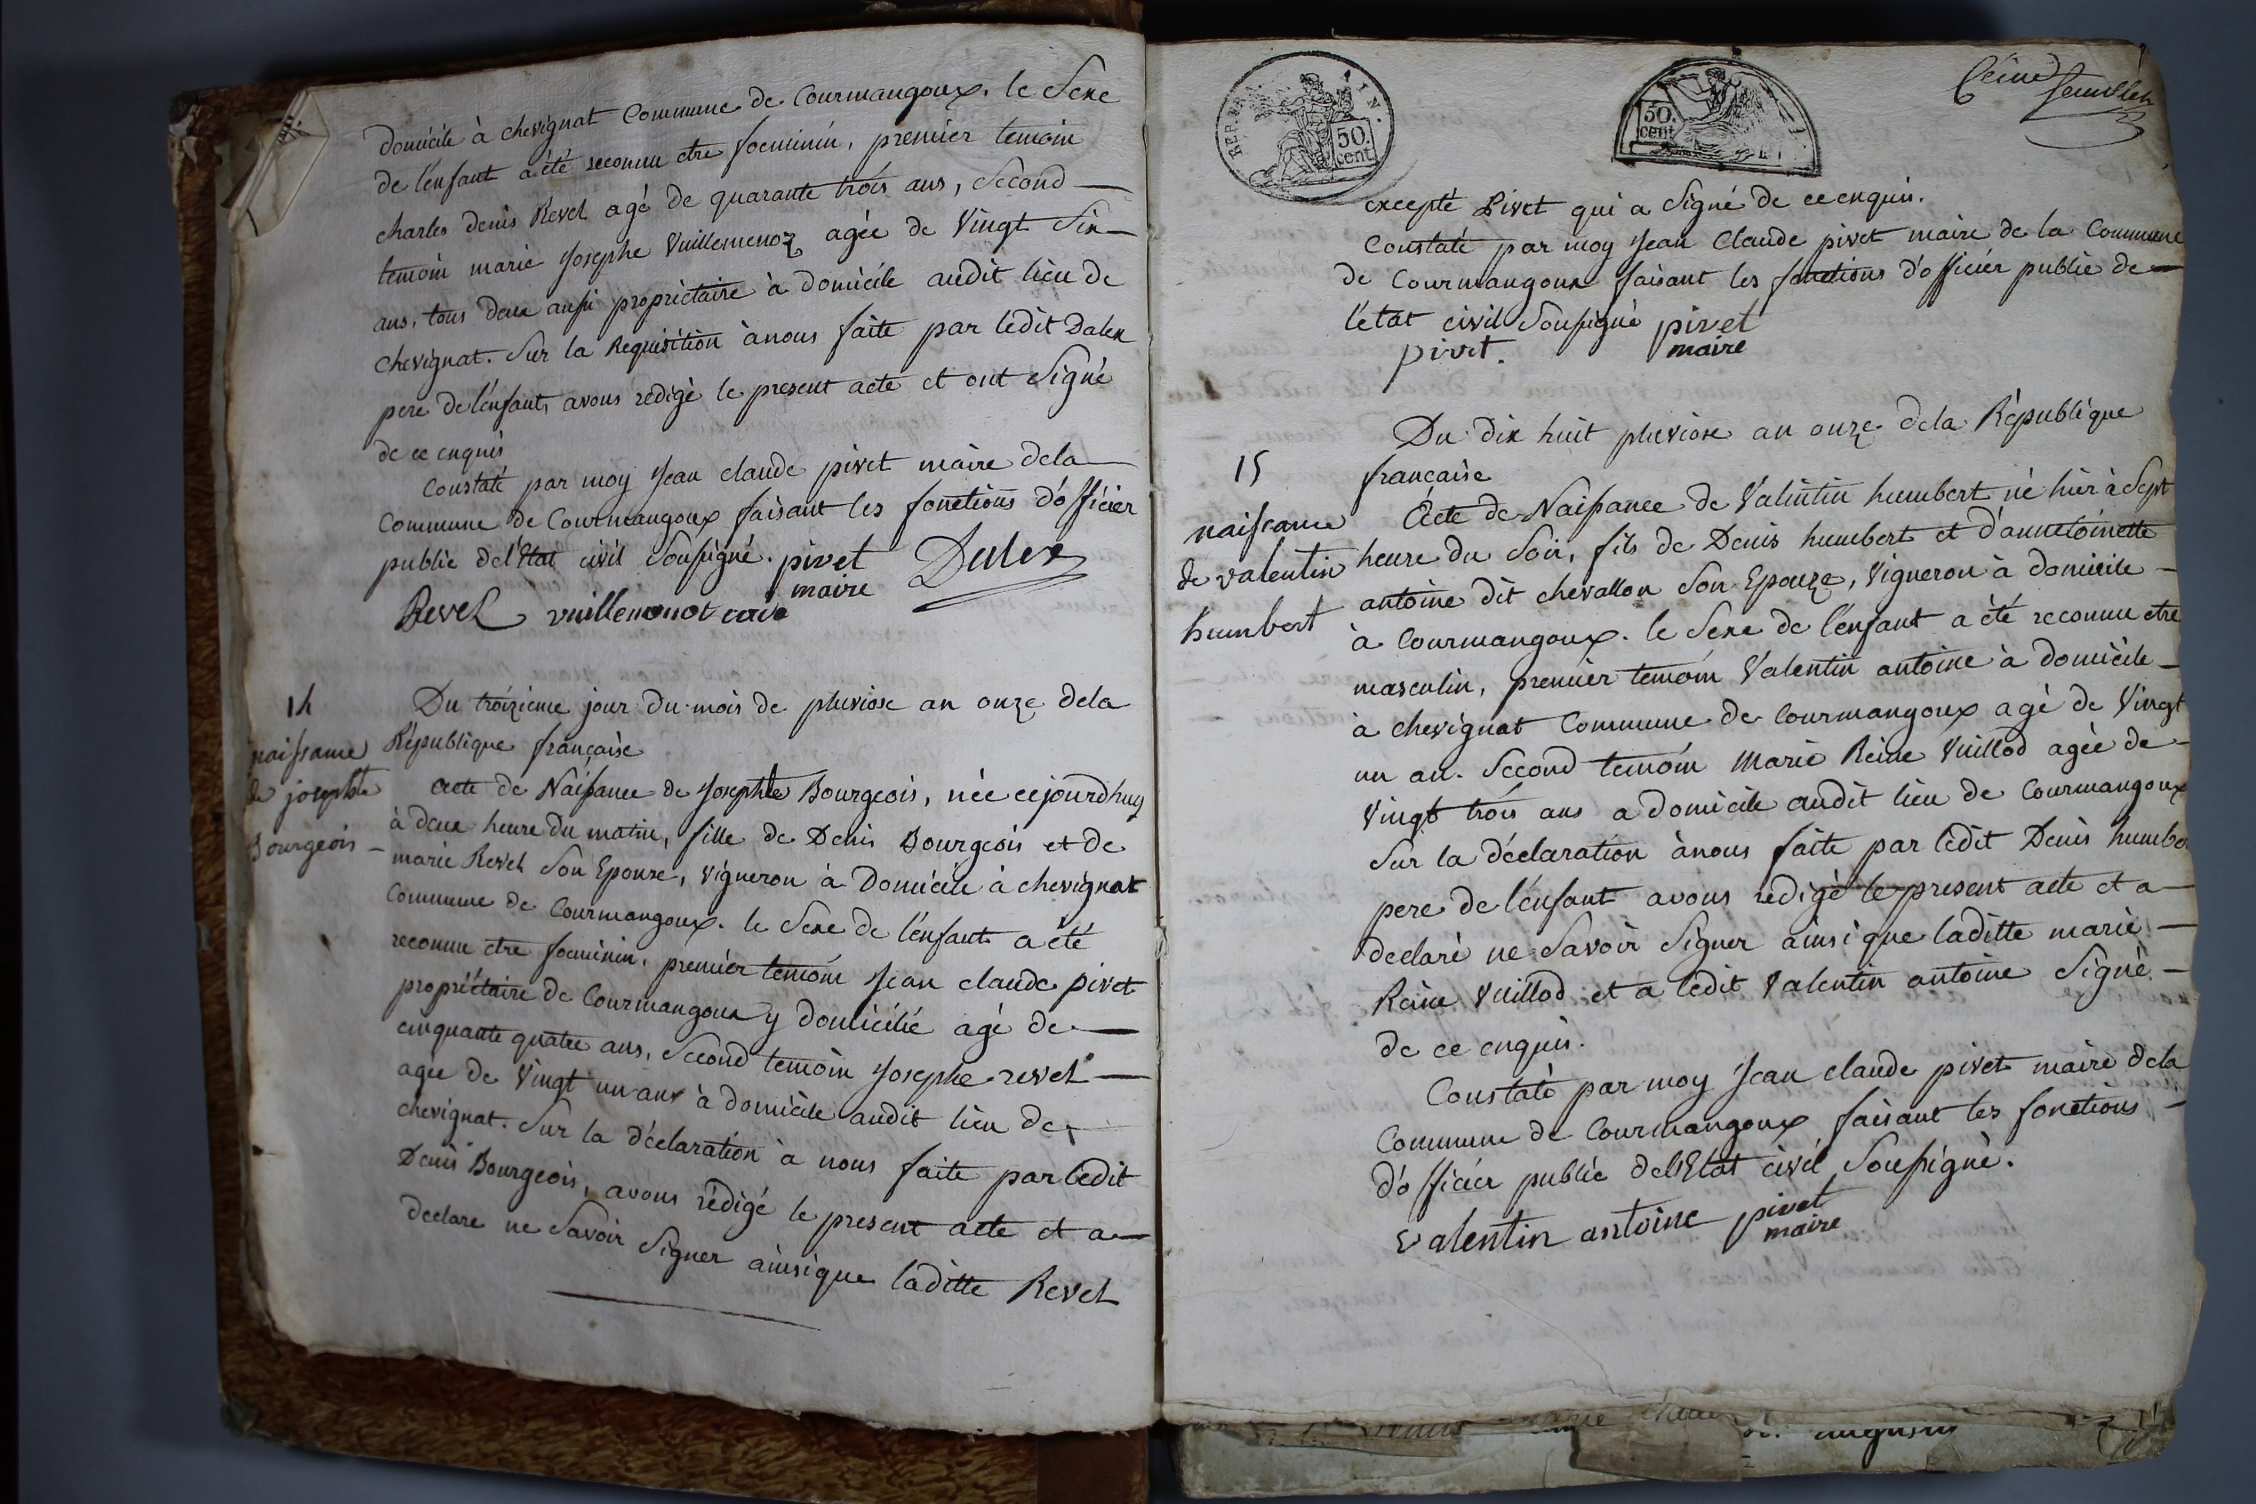 domicile à chevignat Commune de Courmangoux. le Sexe
de l'enfant a été reconnu etre foeminin, premier temoin
charles denis Revel agé de quarante trois ans, Second
temoin marie Josephe Vuillemenoz agée de Vingt Six
ans, tous deux aussi propriétaire à domicile audit lieu de
chevignat. Sur la Requisition à nous faite par ledit Dalex
pere de l'enfant, avons redigé le present acte et ont Signé
de ce enquis
Constaté par moy Jean claude pivet maire dela
Commune de Courmangoux faisant les fonctions d'officier
public de l'Etat civil Soussigné. pivet Dalex
maire
Revel vuillemonot
14
naissance
de josephte
Bourgeois
Du troizieme jour du mois de pluviose an onze dela
République française
Acte de Naissance de Josephte Bourgeois, née cejourd'huy
à deux heure du matin, fille de Denis Bourgeois et de
marie Revel Son Epouse, Vigneron à Domicile à chevignat
Commune de Courmangoux. le Sexe de l'enfant a été
reconnu etre foeminin, premier temoin Jean claude pivet
propriétaire de Courmangoux y domicilié agé de
cinquante quatre ans, Second temoin Josephe revel
agée de Vingt un ans à domicile audit lieu de
chevignat. Sur la déclaration à nous faite par ledit
Denis Bourgeois, avons rédigé le present acte et a
declare ne Savoir Signer ainsique laditte Revel
REP. FRA. 50. cent
50. cent
feuillet
excepté Pivet qui a Signé de ce enquis.
Constaté par moy Jean Claude pivet maire de la Commune
de Courmangoux faisant les fonctions d'officier public de
l'état civil Soussigné pivet
pivet. maire
15
naissance
de valentin
humbert
Du dix huit pluviose an onze dela République
française
Acte de Naissance de Valintin humbert né hier à Sept
heure du Soir, fils de Denis humbert et d'annetoinette
antoine dit chevallon Son Epouze, Vigneron à domicile
à Courmangoux. le Sexe de l'enfant a été reconnu etre
masculin, premier temoin Valentin antoine à domicile
à chevignat Commune de Courmangoux agé de Vingt
un an. Second temoin Marie Reine Vuillod agée de
Vingt trois ans a domicile audit lieu de Courmangoux
Sur la déclaration à nous faite par ledit Denis humber
pere de l'enfant avons redigé le present acte et a
declaré ne Savoir Signer ainsi que laditte marie
Reine Vuillod et a ledit Valentin antoine Signé
de ce enquis.
Constaté par moy Jean claude pivet maire dela
Commune de Courmangoux faisant les fonctions
d'officier public del'Etat civil Soussigné.
valentin antoine pivet
maire